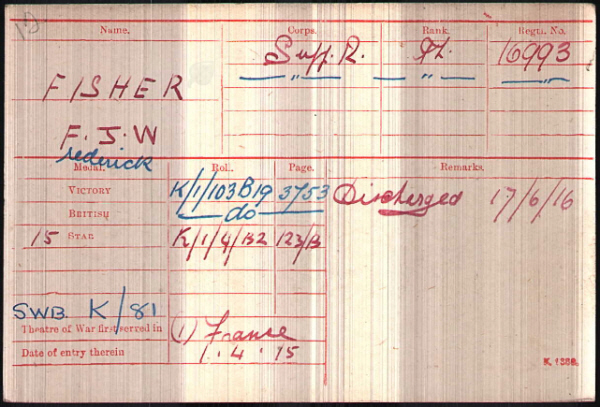 Name. Corps. Rank. Regtl. No.
Suff. R. Pt. 16993
— " — — " — — " —
FISHER
F. J. W
rederick
Medal. Roll. Page. Remarks.
VICTORY K/1/103B19 3753 Discharged 17/6/16
BRITISH — do —
15 STAR K/1/4/B2 123/B
SWB. K/81
Theatre of War first served in (1) France
Date of entry therein 1.4.15
K 1380.